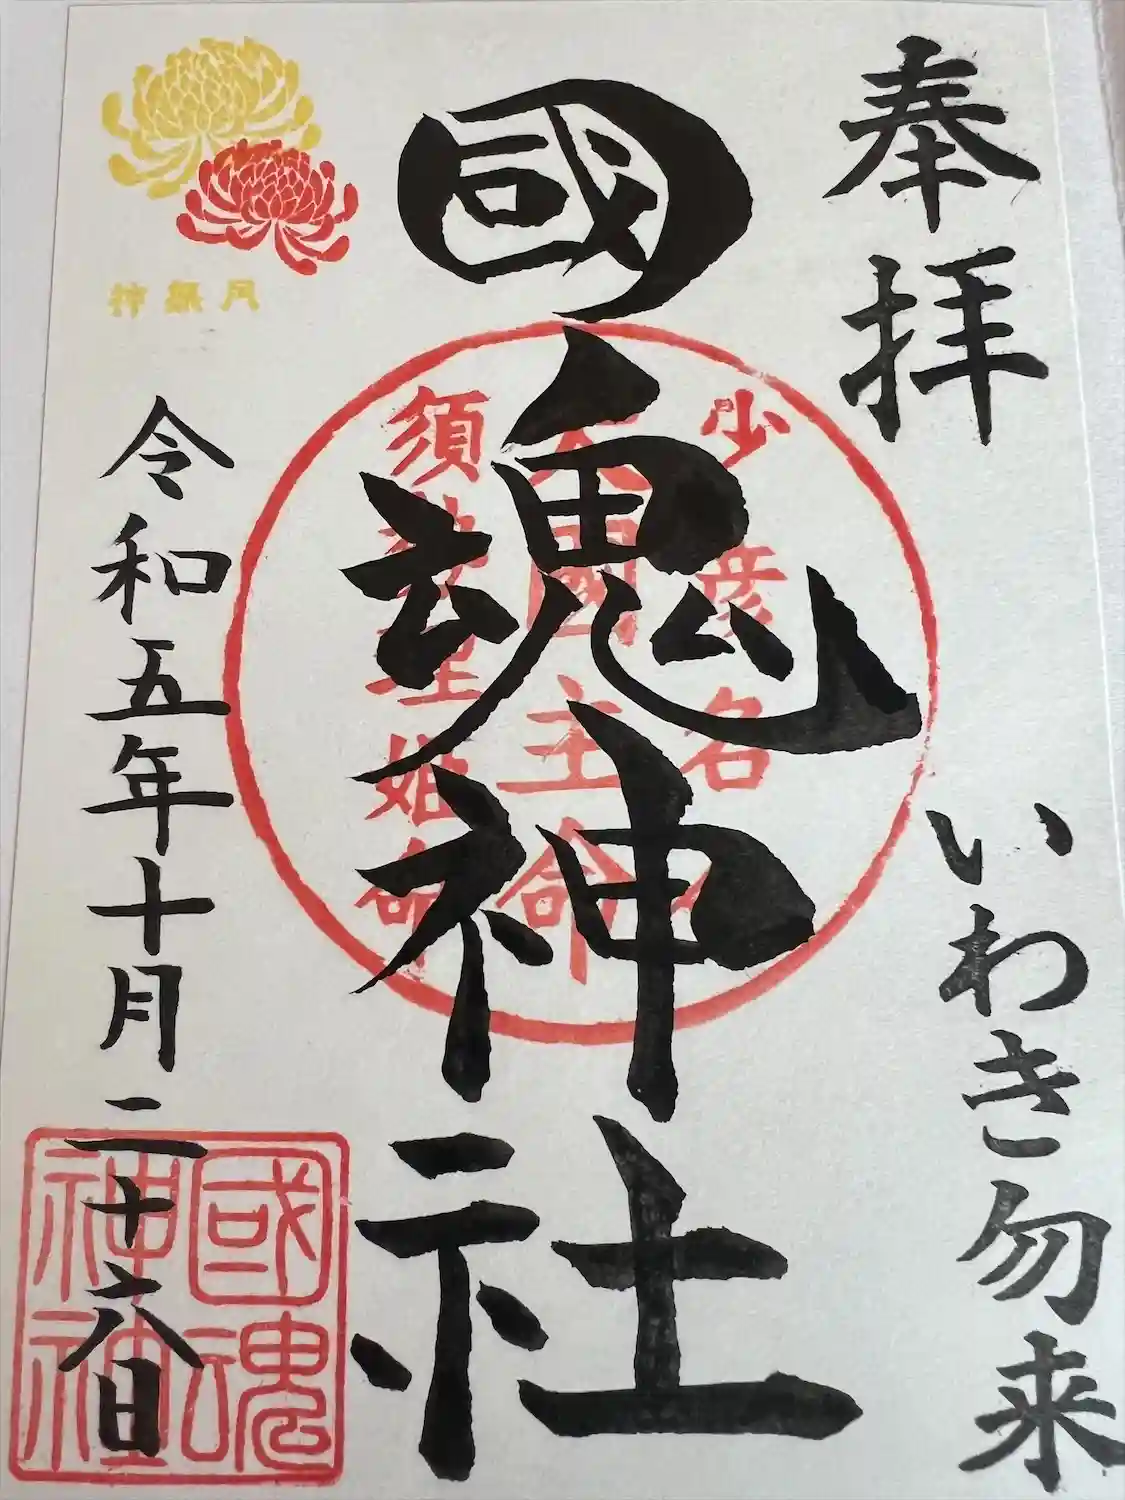 奉拝
いわき勿来
國魂神社
少彦名命
大國主命
須勢理姫命
神無月
令和五年十月二十六日
國魂
神社